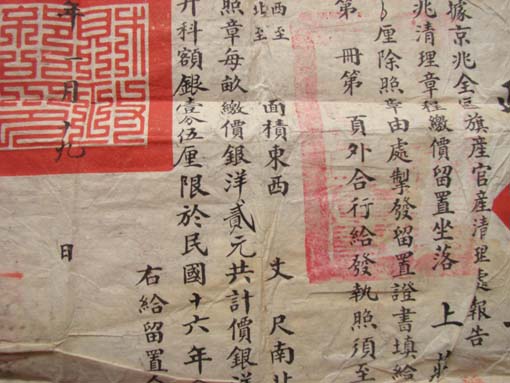 據京兆全區旗產官產清理處報告
兆清理章程繳價留置坐落 上莊
厘除照章由處掣發留置證書填給
第 冊第 頁外合行給發執照須至
西至 面積東西 丈 尺南北
北至
照章每畝繳價銀洋貳元共計價銀洋
升科額銀伍厘限於民國十六年
右給留置
年一月十九日